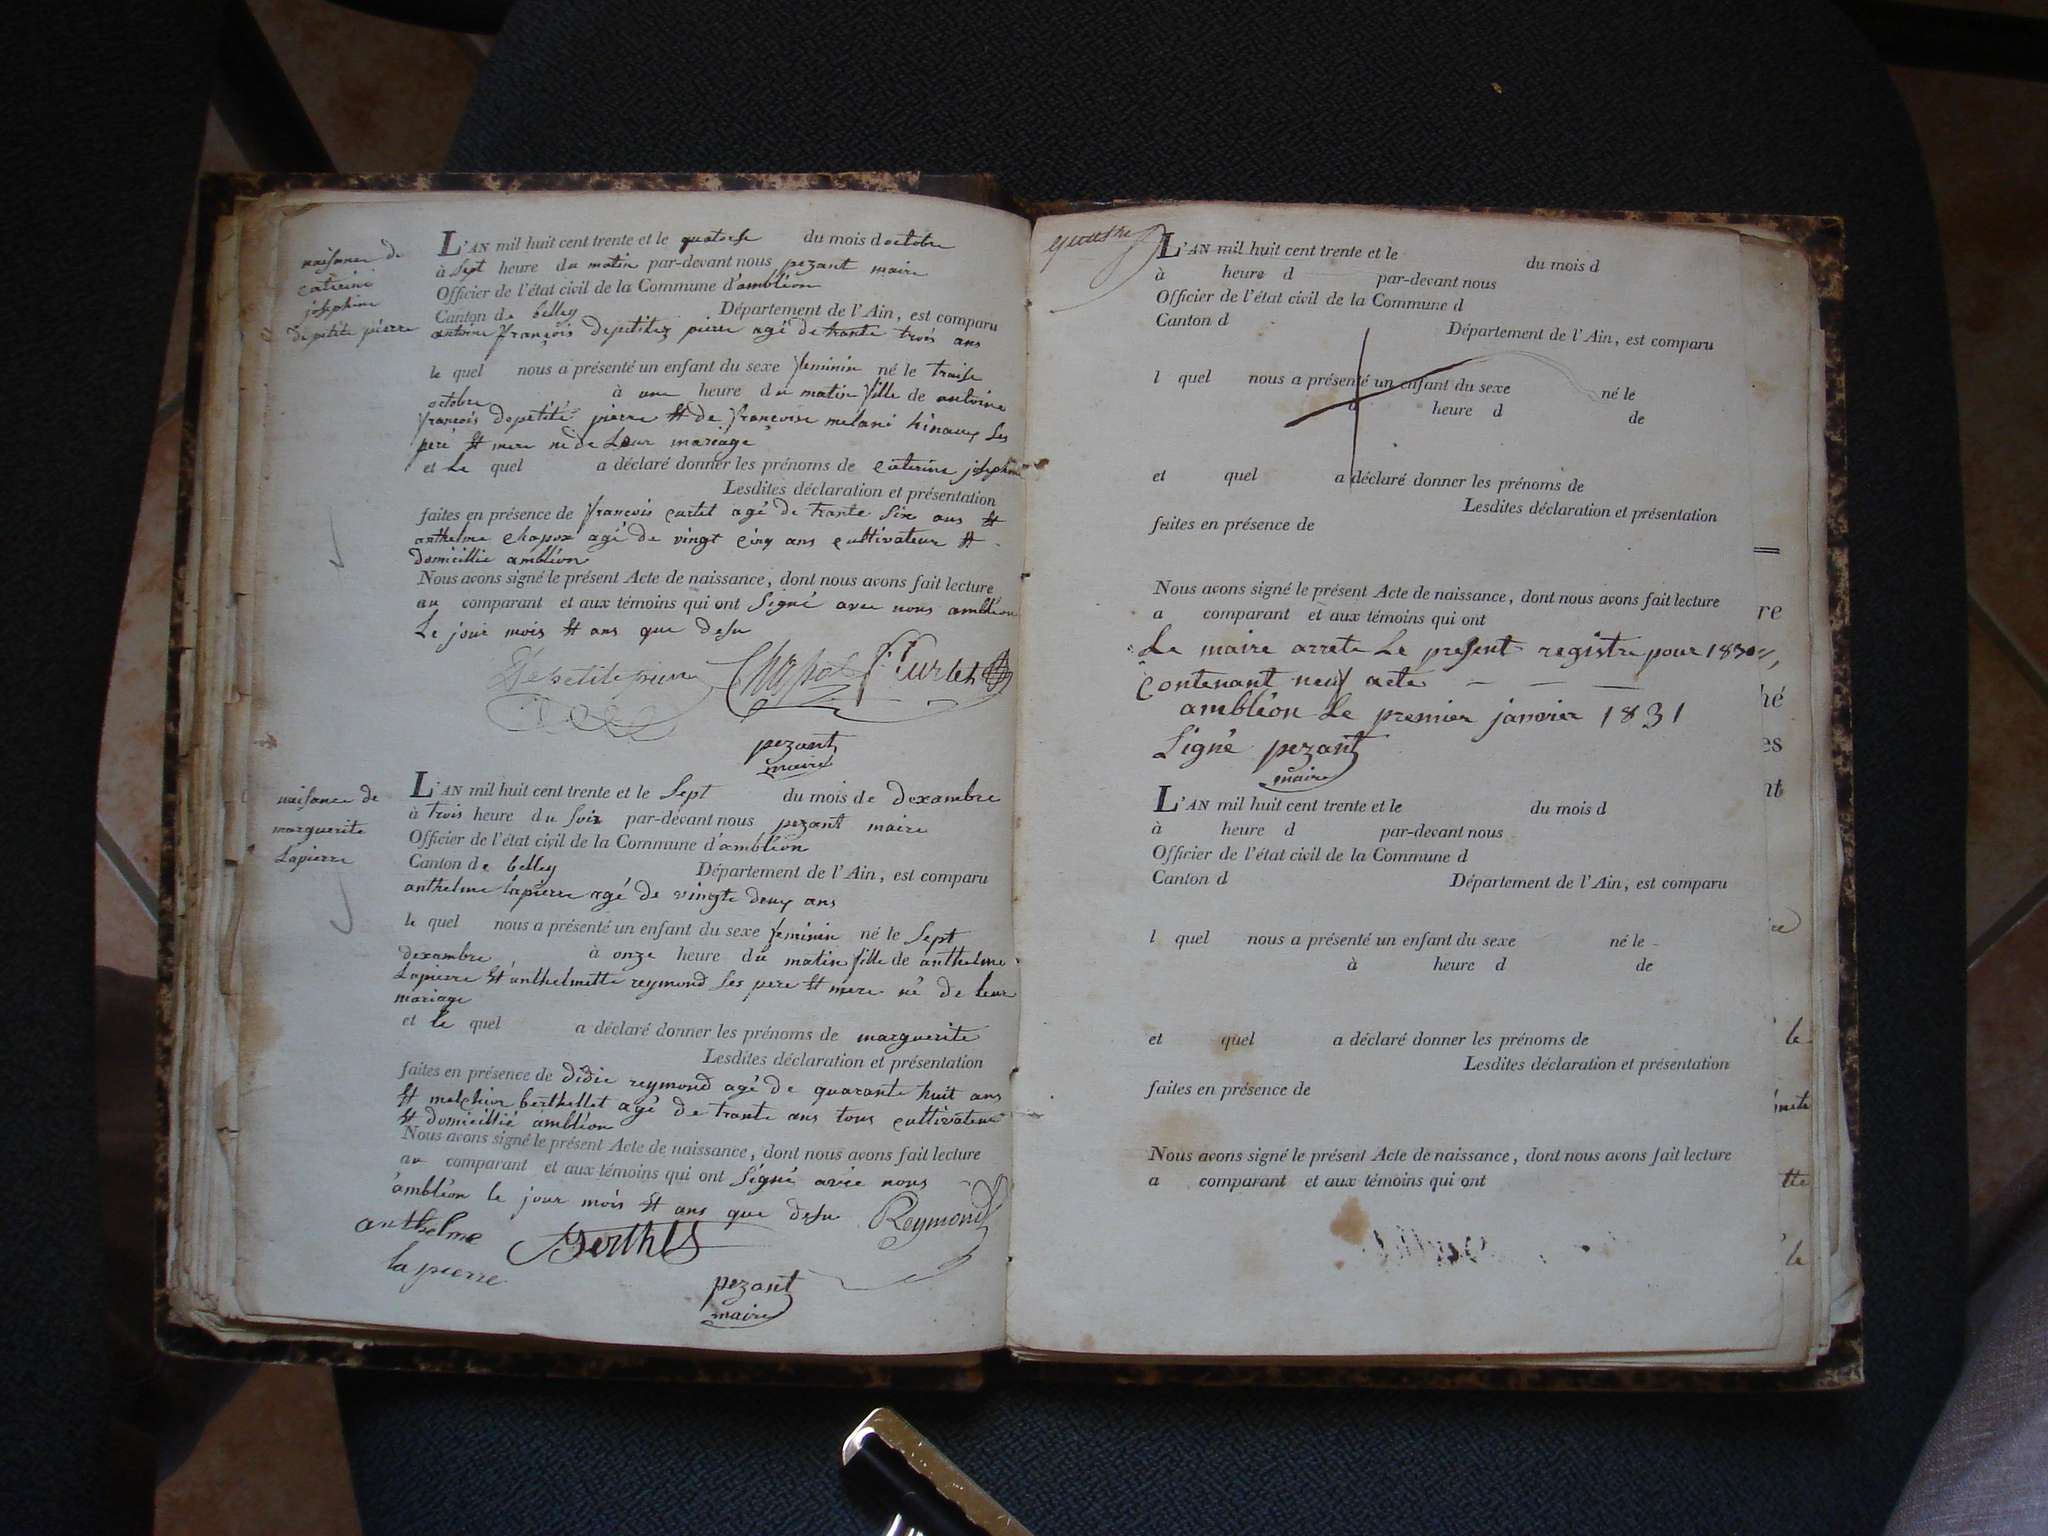 naisance de
caterine
josephine
depetite pierre
L'AN mil huit cent trente et le quatorse du mois doctobre
à sept heure du matin par-devant nous pezant maire
Officier de l'état civil de la Commune d'ambléon
Canton de belley Département de l'Ain, est comparu
antoine françois depetitez pierre agé de trante trois ans
le quel nous a présenté un enfant du sexe feminin né le traise
octobre à une heure du matin fille de antoine
françois depetite pierre et de françoise melani hinaux ses
peré et mere né de Leur mariage
et Le quel a déclaré donner les prénoms de caterine josephine
Lesdites déclaration et présentation
faites en présence de françois curtet agé de trante six ans et
anthelme chapot agé de vingt cinq ans cultivateur et
domicillié ambléon
Nous avons signé le présent Acte de naissance, dont nous avons fait lecture
au comparant et aux témoins qui ont signé avec nous ambléon
Le jour mois et ans que desu
Depetitepierre Chapot f. Curtet
pezant
maire
naisance de
marguerite
Lapierre
L'AN mil huit cent trente et le sept du mois de dexambre
à trois heure du soir par-devant nous pezant maire
Officier de l'état civil de la Commune d'ambléon
Canton de belley Département de l'Ain, est comparu
anthelme lapierre agé de vingte deux ans
le quel nous a présenté un enfant du sexe feminin né le sept
dexambre à onze heure du matin fille de anthelme
Lapierre et anthelmette reymond ses pere et mere né de leur
mariage
et le quel a déclaré donner les prénoms de marguerite
Lesdites déclaration et présentation
faites en présence de didie reymond agé de quarante huit ans
et melchior berthellet agé de trante ans tous cultivateur
et domicillié ambléon
Nous avons signé le présent Acte de naissance, dont nous avons fait lecture
au comparant et aux témoins qui ont signé avec nous
ambléon le jour mois et ans que desu Reymond
anthelme
la pierre
pezant
maire
L'AN mil huit cent trente et le du mois d
à heure d par-devant nous
Officier de l'état civil de la Commune d
Canton d Département de l'Ain, est comparu
l quel nous a présenté un enfant du sexe né le
à heure d de
et quel a déclaré donner les prénoms de
Lesdites déclaration et présentation
faites en présence de
Nous avons signé le présent Acte de naissance, dont nous avons fait lecture
a comparant et aux témoins qui ont
Le maire arrete Le present registre pour 1830,
contenant neuf acte
ambléon Le premier janvier 1831
Signé pezant
maire
L'AN mil huit cent trente et le du mois d
à heure d par-devant nous
Officier de l'état civil de la Commune d
Canton d Département de l'Ain, est comparu
l quel nous a présenté un enfant du sexe né le
à heure d de
et quel a déclaré donner les prénoms de
Lesdites déclaration et présentation
faites en présence de
Nous avons signé le présent Acte de naissance, dont nous avons fait lecture
a comparant et aux témoins qui ont
re
hé
es
nt
le
tte
le